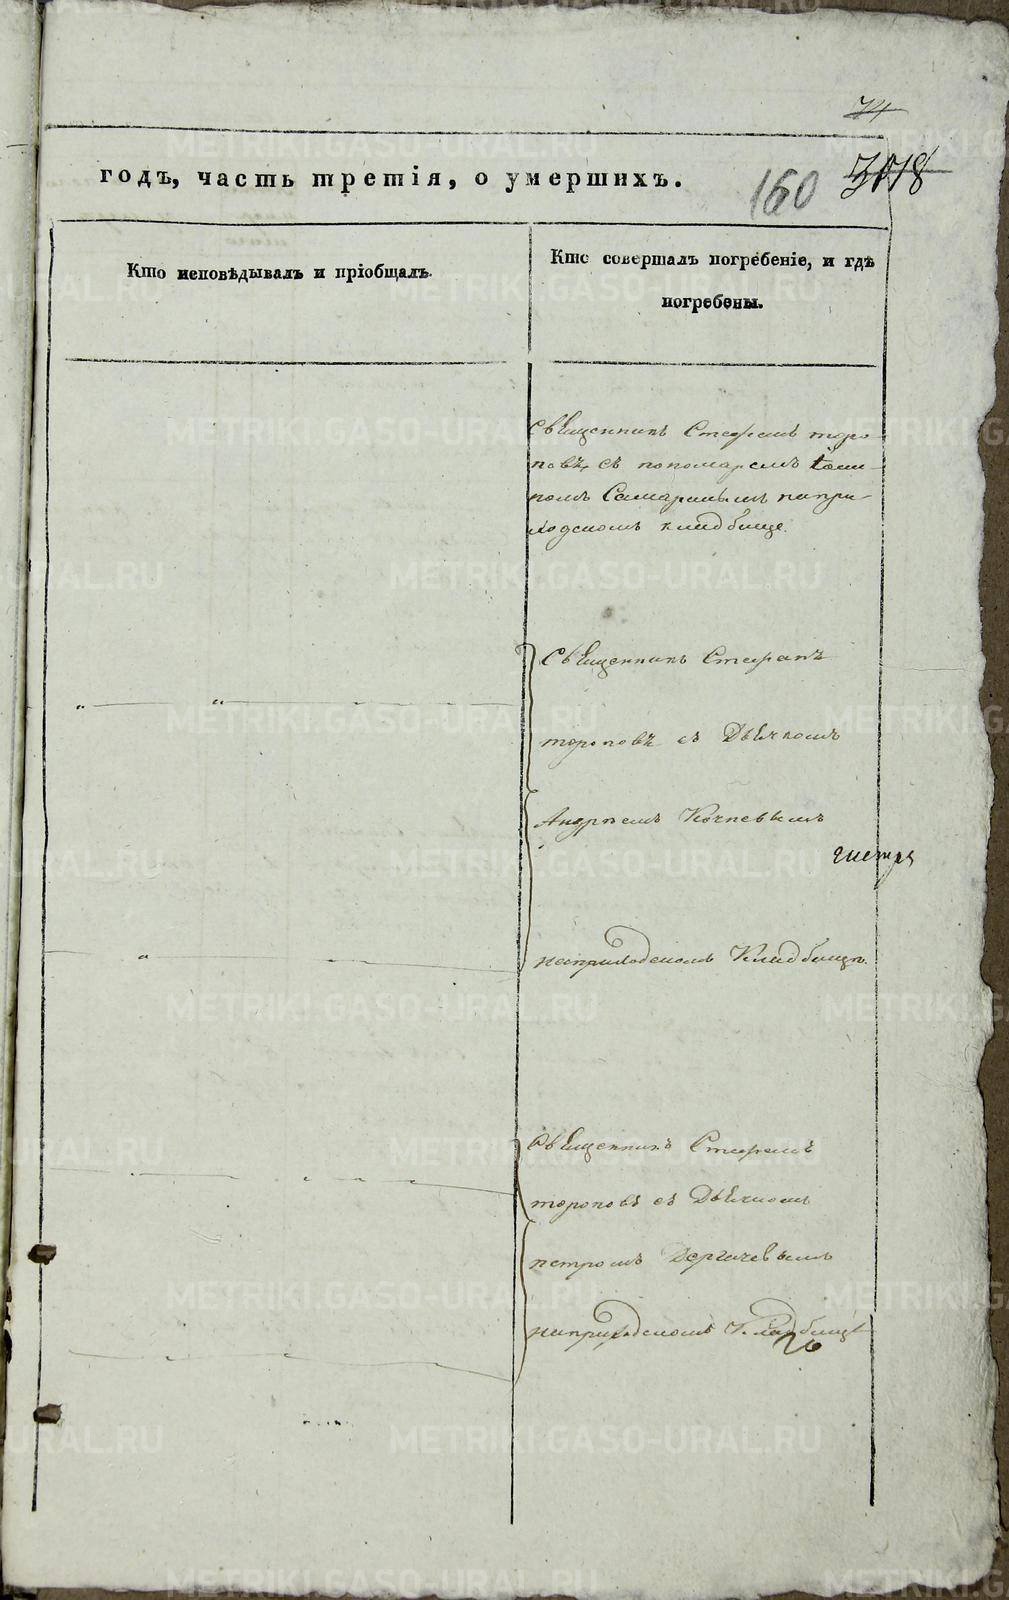 74
годъ, часть третія, о умершихъ.
160
3078
Кто исповѣдывалъ и пріобщалъ.
Кто совершалъ погребеніе, и гдѣ
погребены.
Священникъ Стефанъ торо-
повъ, съ пономаремъ
Самаринымъ напри-
ходскомъ кладбище.
Священникъ Стефанъ
тороповъ съ Дьячкомъ
Андреемъ Кочневымъ
наприходскомъ Кладбище.
Священникъ Стефанъ
тороповъ съ Дьячкомъ
петромъ Дергачевымъ
наприходскомъ Кладбище
METRIKI.GASO-URAL.RU